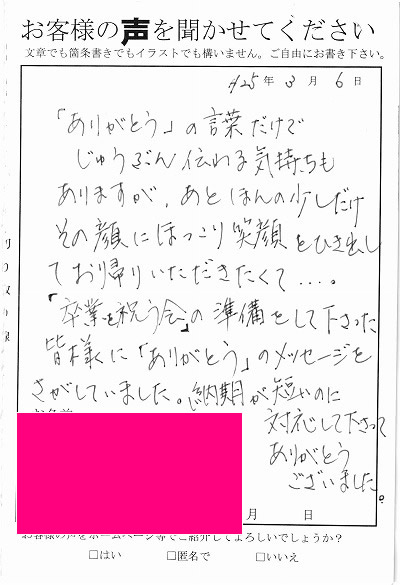 お客様の声を聞かせてください
文章でも箇条書きでもイラストでも構いません。ご自由にお書き下さい。
H25年 3月 6日
「ありがとう」の言葉だけで
じゅうぶん伝わる気持ちも
ありますが、あとほんの少しだけ
その顔にほっこり笑顔をひき出し
てお帰りいただきたくて……。
「卒業を祝う会」の準備をして下さった
皆様に「ありがとう」のメッセージを
さがしていました。納期が短いのに
対応して下さって
ありがとう
ございました。
お名前
月 日
お客様の声をホームページ等でご紹介してよろしいでしょうか?
□はい □匿名で □いいえ